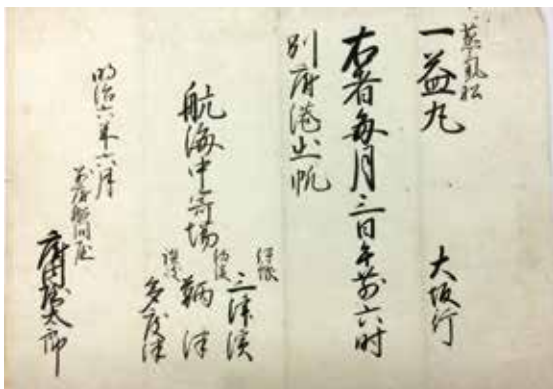 蒸気船
一益丸 大坂行
右者毎月三日午前六时
別府港出帆
航海中寄場
伊豫 三津濱
備後 鞆津
讃岐 多度津
明治六年六月
船問屋
太郎